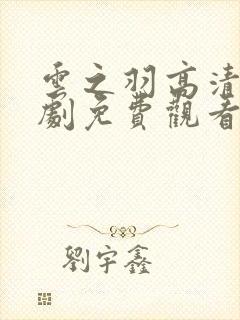 雲之羽高清
劇免費觀看
劉宇鑫